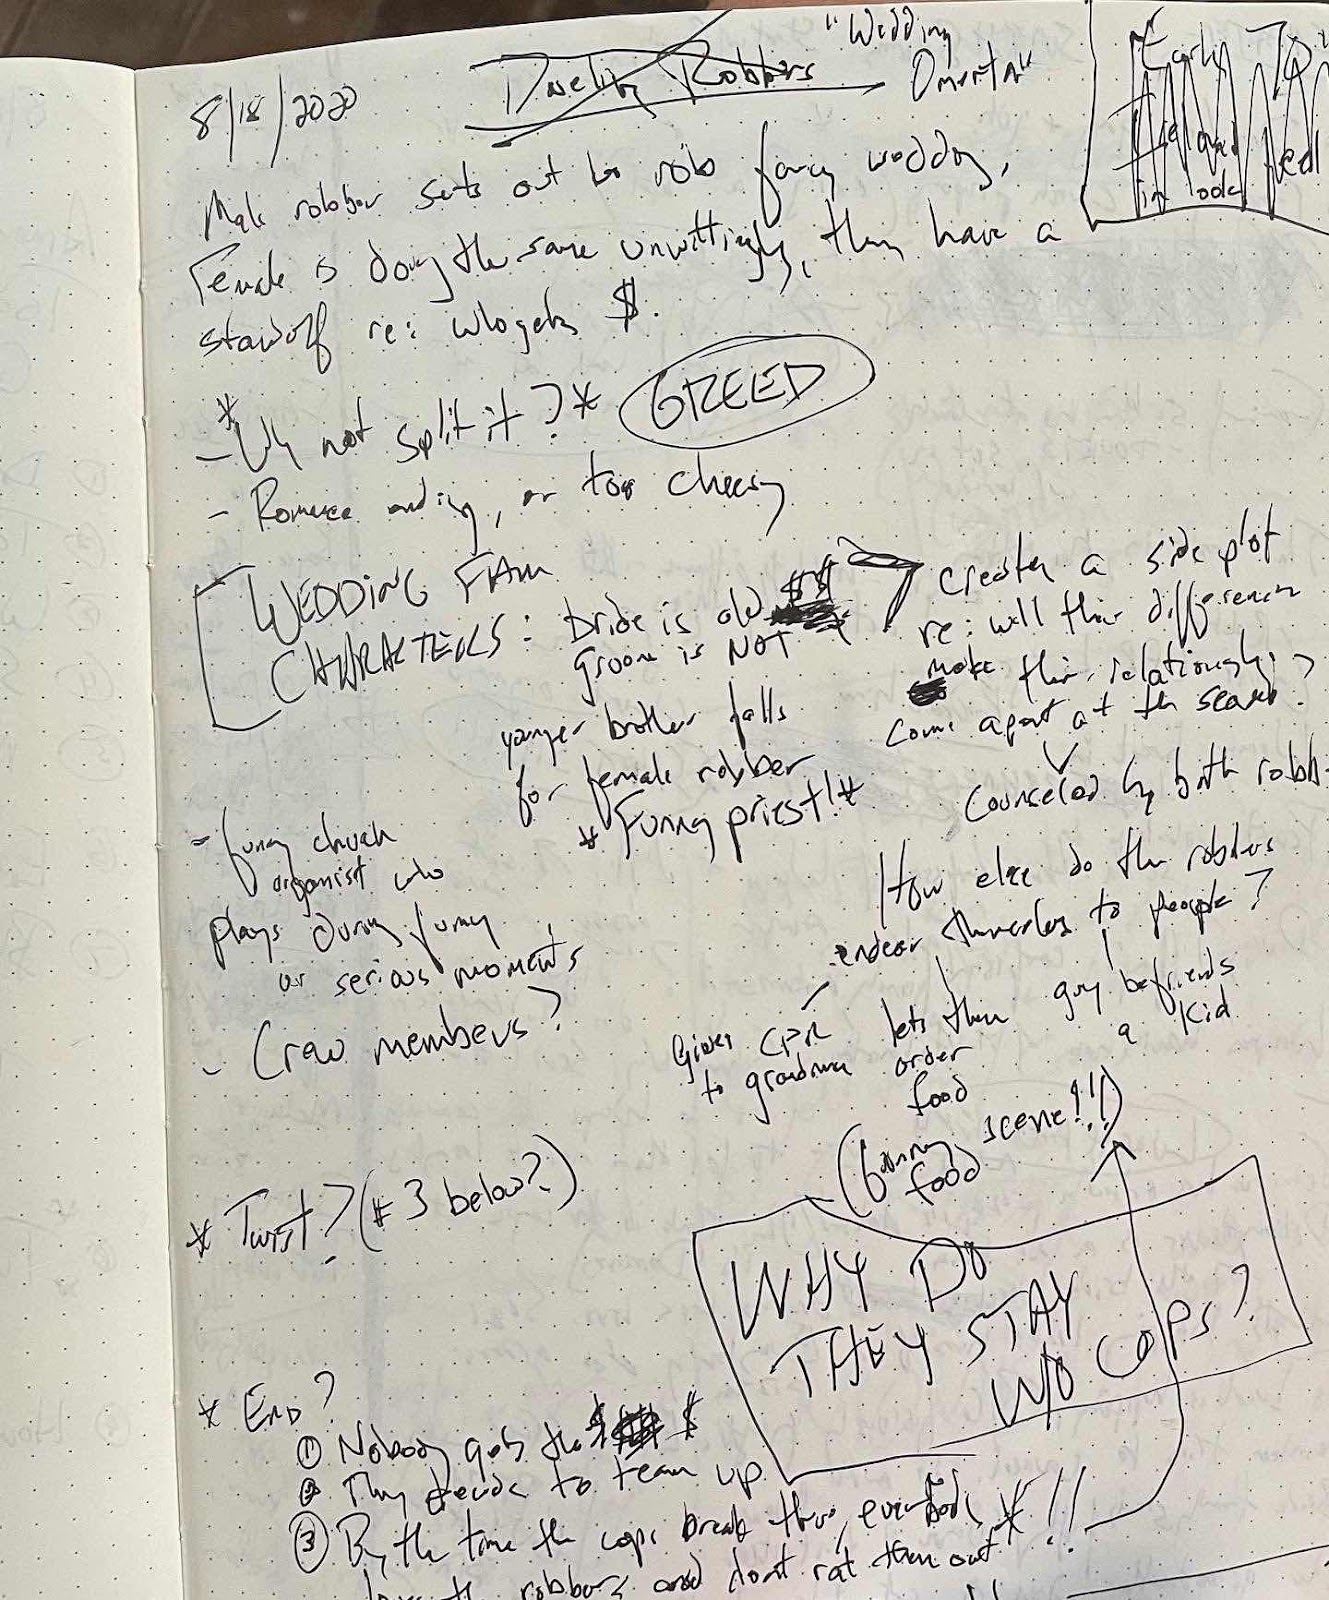 8/18/2020
Dueling Robbers
"Wedding
Omerta"
Early
in
Male robber sets out to rob fancy wedding,
Female is doing the same unwittingly, they have a
standoff re: who gets $.
- *Why not split it?* GREED
- Romance ending, or too cheesy
WEDDING FAM
CHARACTERS: bride is old $$
groom is NOT
younger brother falls
for female robber
* Funny priest!*
creates a side plot
re: will their differences
make their relationship
come apart at the seams?
Counseled by both robb-
- funny church
organist who
plays during funny
or serious moments
- Crew members?
How else do the robbers
endear themselves to people?
Gives CPR
to grandma
lets them
order
food
guy befriends
a kid
(funny food scene!!!)
* Twist? (#3 below?)
WHY DO
THEY STAY
W/O COPS?
* END?
① Nobody gets the $
② They decide to team up
③ By the time the cops break thru, everybody *!!
loves the robbers and don't rat them out